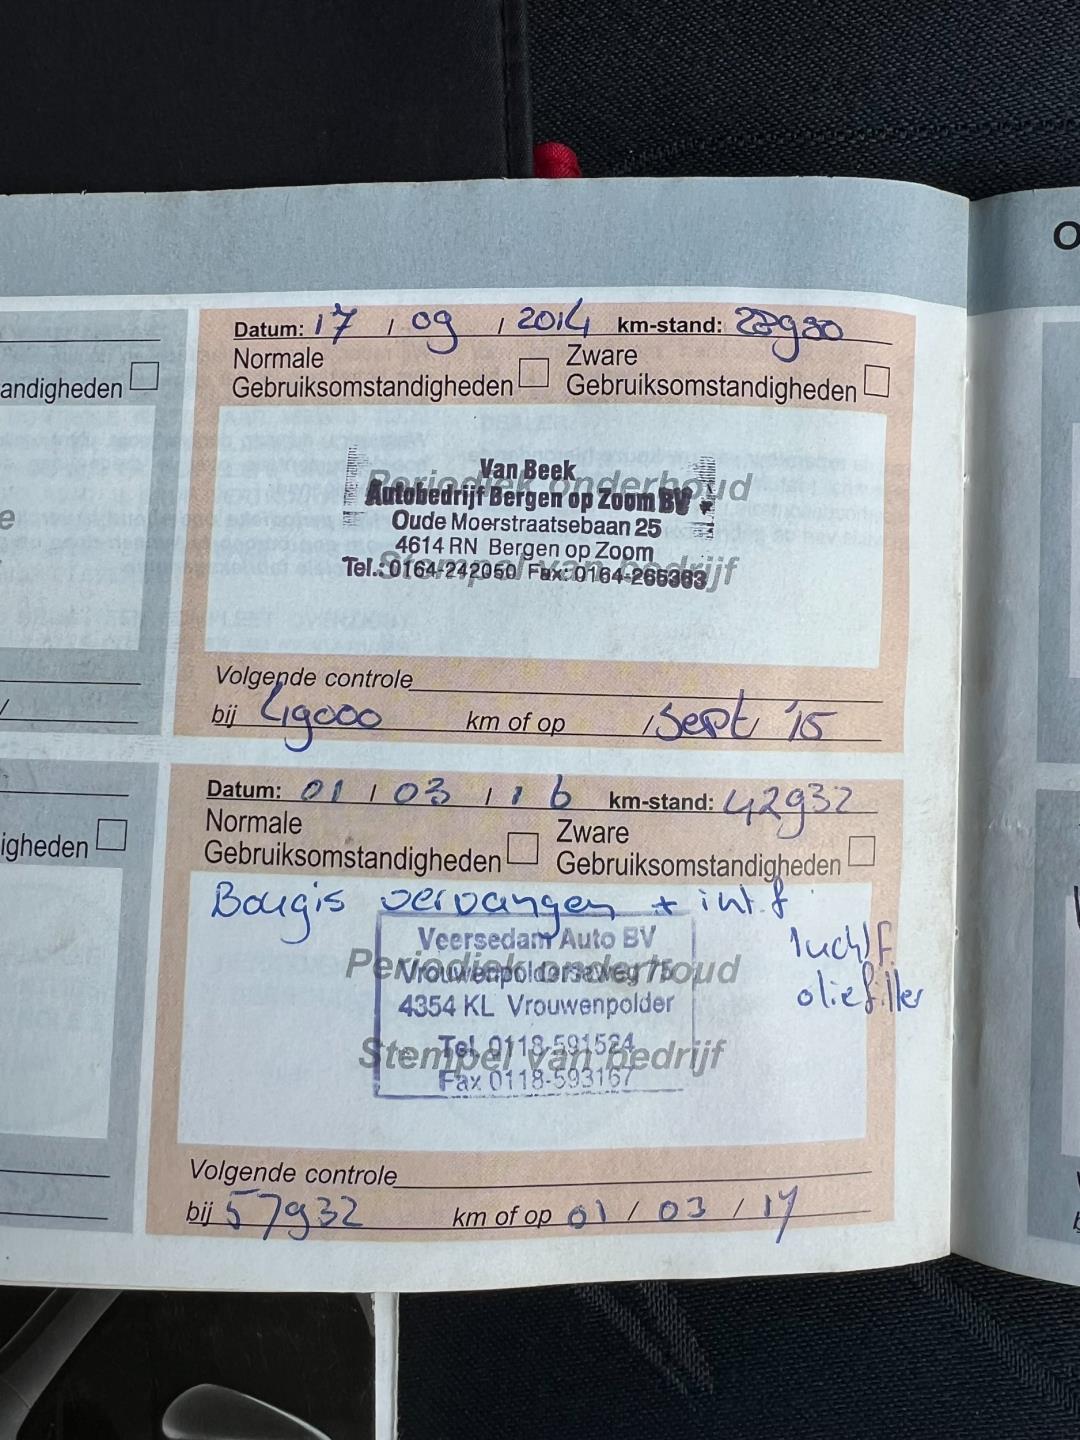 O
Datum: 17 / 09 / 2014 km-stand:
Normale
Gebruiksomstandigheden
Zware
Gebruiksomstandigheden
andigheden
Periodiek onderhoud
Stempel van bedrijf
Van Beek
Autobedrijf Bergen op Zoom BV
Oude Moerstraatsebaan 25
4614 RN Bergen op Zoom
Tel.: 0164-242050 Fax: 0164-265363
e
Volgende controle
bij 49000 km of op / Sept '15
Datum: 01 / 03 / 16 km-stand: 42932
Normale
Gebruiksomstandigheden
Zware
Gebruiksomstandigheden
igheden
Bougis vervangen + int.f
luchtF
oliefilter
Periodiek onderhoud
Stempel van bedrijf
Veersedam Auto BV
Vrouwenpolderseweg 75
4354 KL Vrouwenpolder
Tel. 0118-591524
Fax 0118-593167
Volgende controle
bij 57932 km of op 01 / 03 / 17